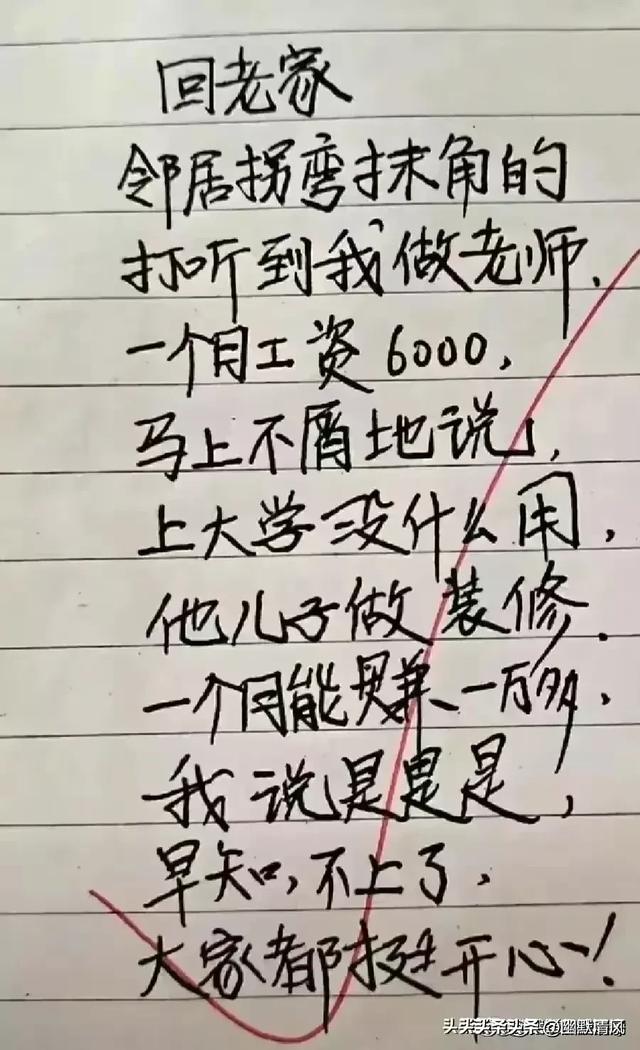 回老家
邻居拐弯抹角的
打听到我做老师.
一个月工资6000,
马上不屑地说,
上大学没什么用,
他儿子做装修.
一个月能赚一万多,
我说是是是,
早知,不上了,
大家都挺开心!